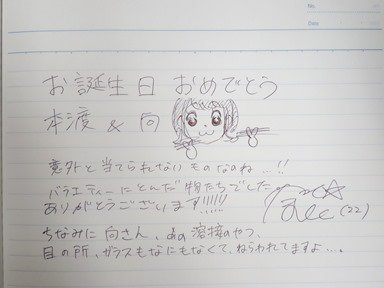 No.
Date
お誕生日 おめでとう
本渡 & 向
意外と当てられないものなのね…!!
バラエティーにとんだ物たちでした
ありがとうございます!!!!!
(22)
ちなみに向さん、あの溶接のやつ、
目の所、ガラスもなにもなくて、ねらわれてますよ…。